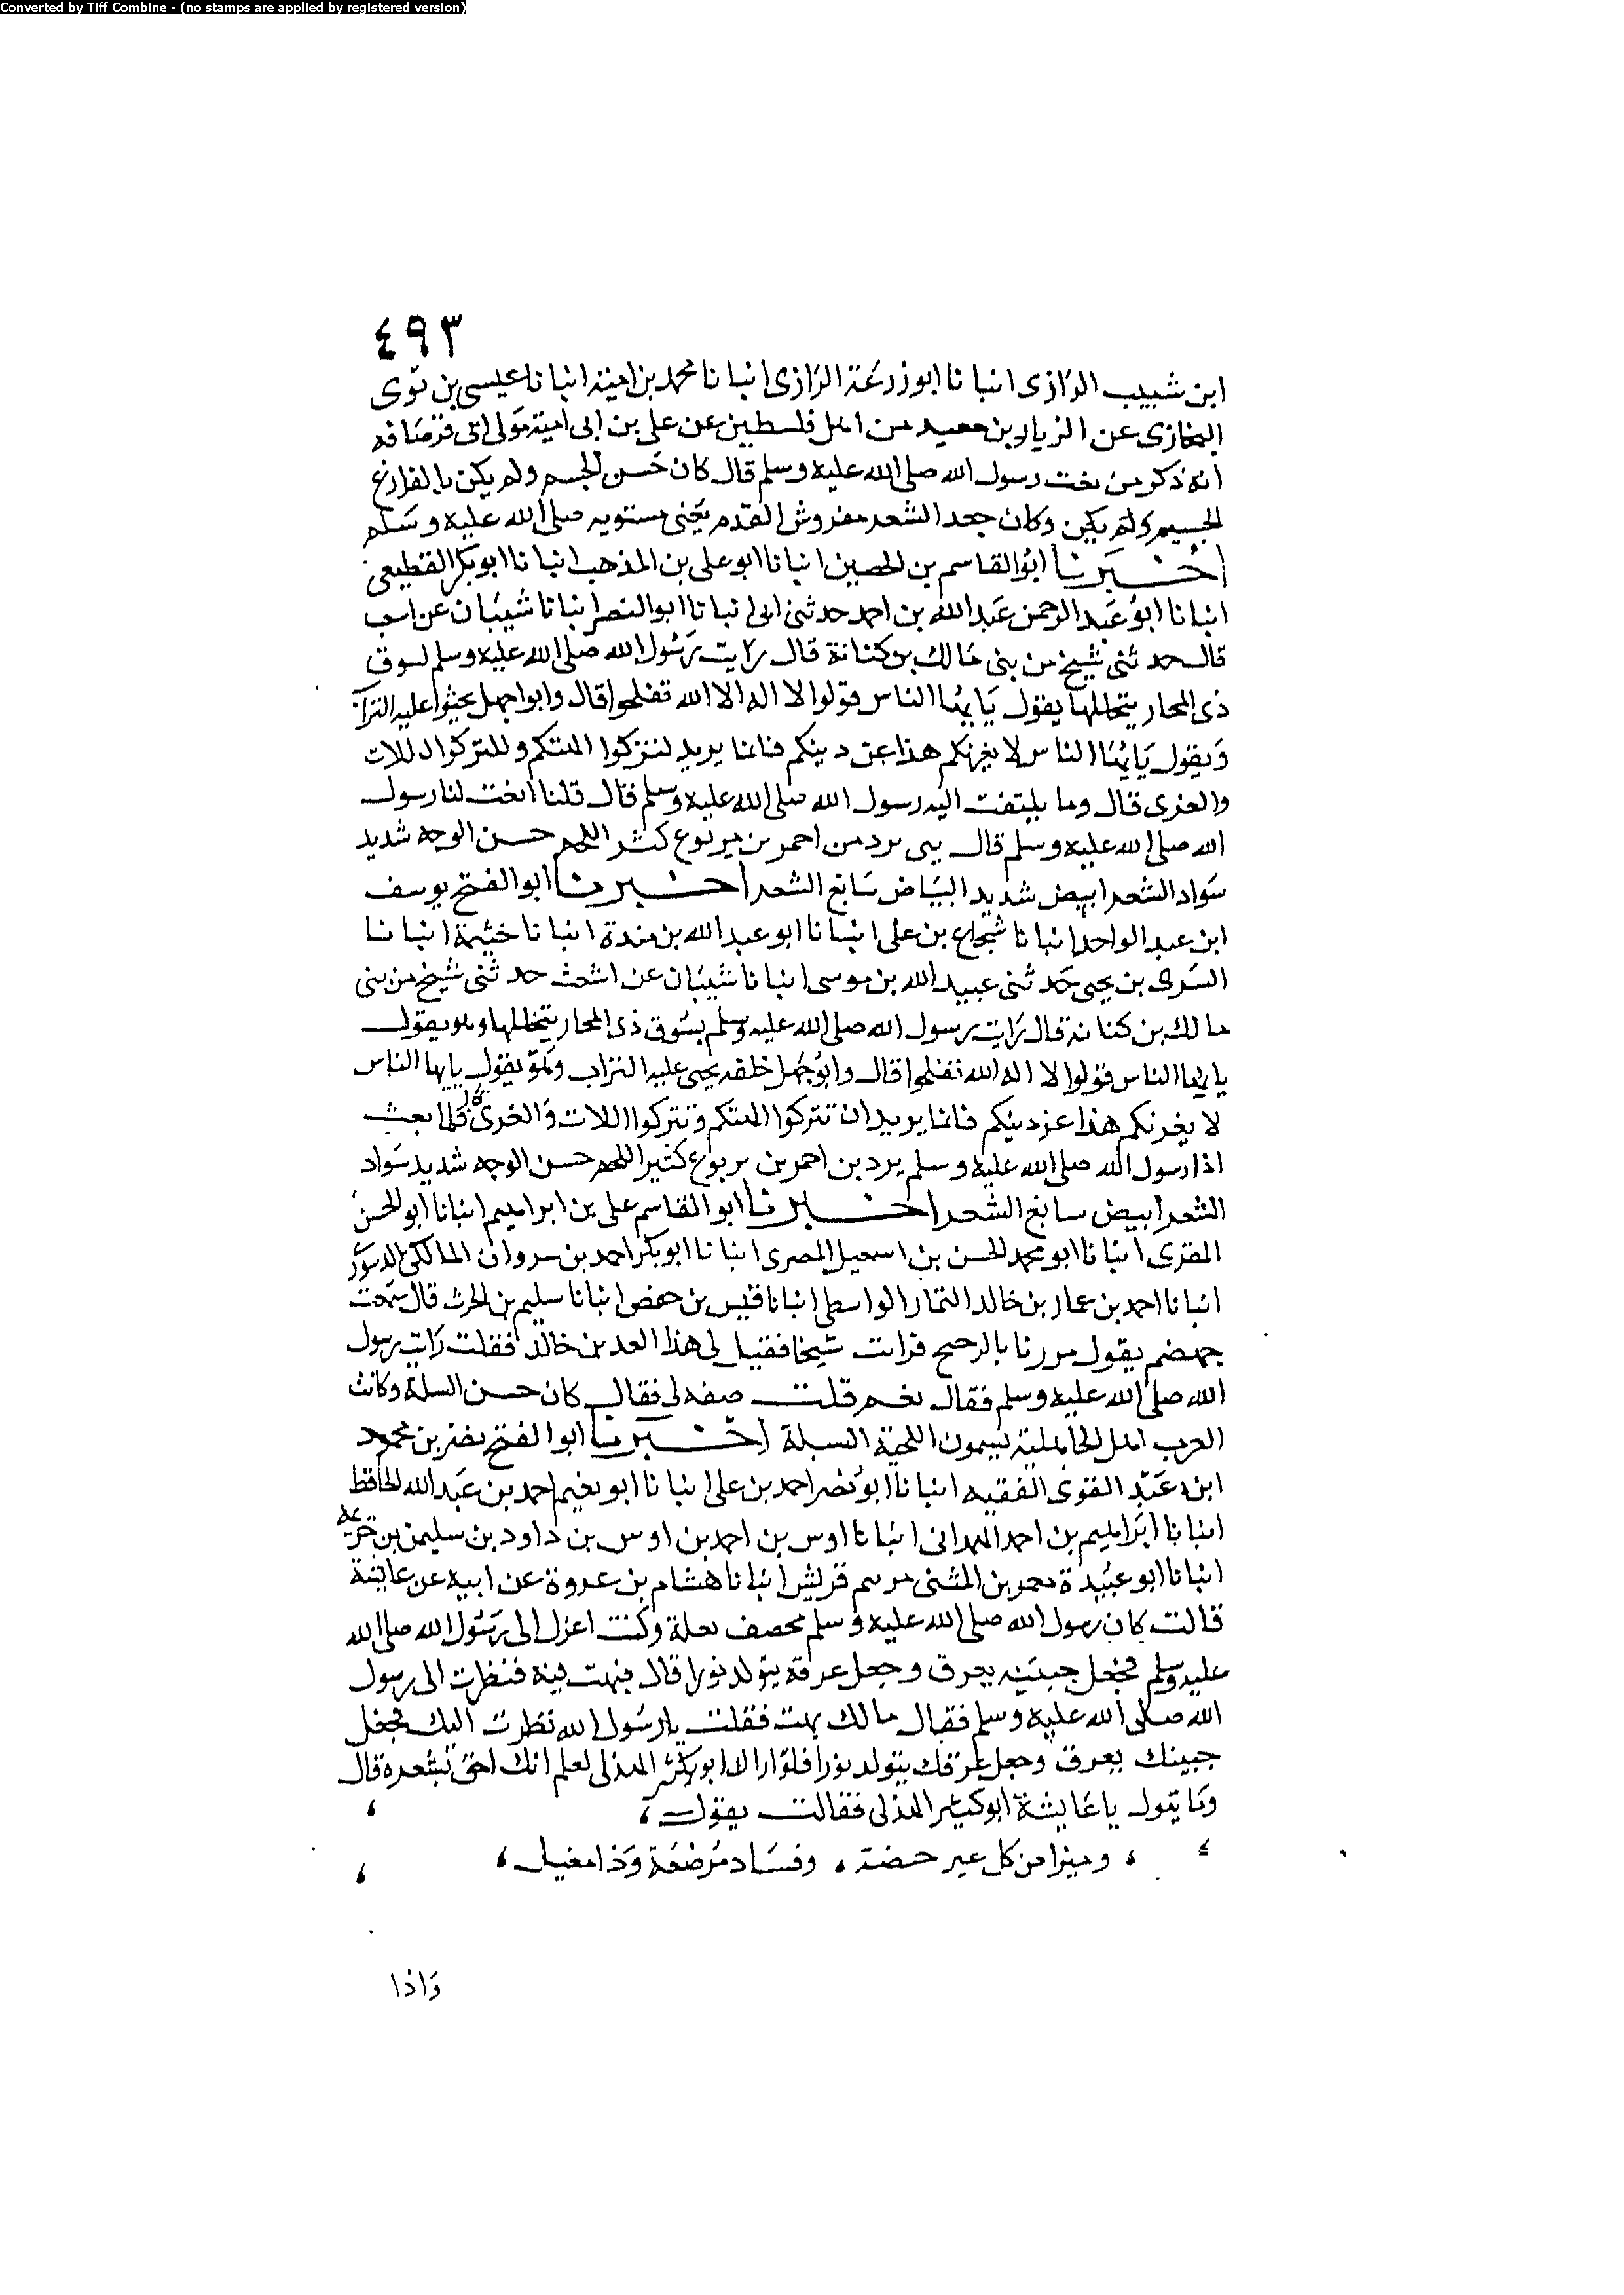 Converted by Tiff Combine - (no stamps are applied by registered version)
٤٩٣
ابن شبيب الرازى انبانا ابو زرعة الرازى انبانا محمد بن امية انبانا عيسى بن موسى
البخازى عن الزيار بن سعيد من اهل فلسطين عن على بن ابى امية مولى ابى قرصافه
انه ذكر من نعت رسول الله صلى الله عليه وسلم قال كان حسن الجسم ولم يكن بالفارع
الجسيم ولم يكن وكان جعد الشعر مفروش القدم يعنى مستويه صلى الله عليه وسلم
اخبرنا ابو القاسم بن الحصين انبانا ابو على بن المذهب انبانا ابو بكر القطيعى
انبانا ابو عبد الرحمن عبد الله بن احمد حدثنى ابى انبانا ابو النصر انبانا شيبان عن
قال حدثنى شيخ من بنى مالك بن كنانة قال رايت رسول الله صلى الله عليه وسلم بسوق
ذى المحار يتخللها يقول يايها الناس قولوا لا اله الا الله تفلحوا قال وابو جهل يحثوا عليه التراب
ويقول يايها الناس لا يغرنكم هذا عن دينكم فانما يريد لتتركوا الهتكم ولتتركوا اللات
والعزى قال وما يلتفت اليه رسول الله صلى الله عليه وسلم قال قلنا انعت لنا رسول
الله صلى الله عليه وسلم قال بين بردين احمر بن مربوع كثير اللحم حسن الوجه شديد
سواد الشعر ابيض شديد البياض سابغ الشعر اخبرنا ابو الفتح يوسف
ابن عبد الواحد انبانا شجاع بن على انبانا ابو عبد الله بن مندة انبانا خيثمة انبانا
السرى بن يحيى حدثنى عبيد الله بن موسى انبانا شيبان عن اشعث حدثنى شيخ من بنى
مالك بن كنانة قال رايت رسول الله صلى الله عليه وسلم بسوق ذى المحار يتخللها وهو يقول
يايها الناس قولوا لا اله الا الله تفلحوا قال وابو جهل خلفه يحثى عليه التراب وهو يقول يايها الناس
لا يغرنكم هذا عن دينكم فانما يريد ان تتركوا الهتكم وتتركوا اللات والعزى قال فلما بعث
اذا رسول الله صلى الله عليه وسلم برد بن احمر بن مربوع كثير اللحم حسن الوجه شديد سواد
الشعر ابيض سابغ الشعر اخبرنا ابو القاسم على بن ابراهيم انبانا ابو الحسن
المقرى انبانا ابو محمد الحسن بن اسمعيل المصرى انبانا ابو بكر احمد بن مروان المالكى
انبانا احمد بن عمار بن خالد التمار الواسطى انبانا قيس بن حفص انبانا سليم بن الحرث قال سمعت
جهضم يقول مررنا بالرحيح فرايت شيخا فقيل لى هذا العد بن خالد فقلت رايت رسول
الله صلى الله عليه وسلم فقال نعم قلت صفه لى فقال كان حسن السبلة وكانت
العرب اهل الجاهلية يسمون اللحية السبلة اخبرنا ابو الفتح نصر بن محمود
ابن عبد القوى الفقيه انبانا ابو نصر احمد بن على انبانا ابو نعيم احمد بن عبد الله الحافظ
انبانا ابراهيم بن احمد الهمدانى انبانا اوس بن احمد بن اوس بن داود بن سليمن بن
انبانا ابو عبيدة معمر بن المثنى مرسم قريش انبانا هشام بن عروة عن ابيه عن عايشة
قالت كان رسول الله صلى الله عليه وسلم يخصف نعلة وكنت اغزل الى رسول الله صلى الله
عليه وسلم فجعل جبينه يعرق وجعل عرقه يتولد نورا قال فبهت فيه فنظرت الى رسول
الله صلى الله عليه وسلم فقال مالك بهت فقلت يا رسول الله نظرت اليك فجعل
جبينك يعرق وجعل عرقك يتولد نورا فلو ارالا ابو بكر الهذلى لعلم انك احق بشعره قال
وما يقول يا عايشة ابو كبير الهذلى فقالت يقول
ومبرا من كل عير حيضة وفساد مرضعة وذا مغيل
واذا